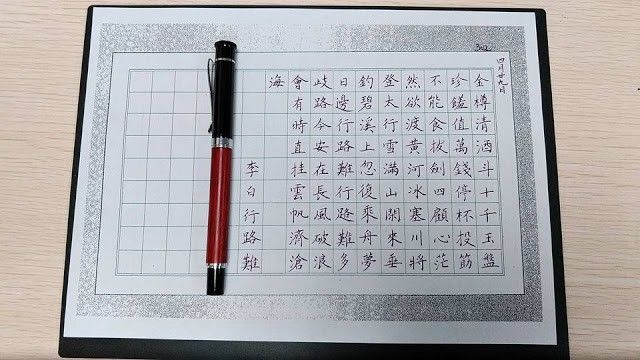 四月廿九日
金樽清酒斗十千玉盤
珍饈值萬錢停杯投筋
不能食拔劍四顧心茫
然欲渡黃河冰塞川將
登太行雪滿山閑來垂
釣碧溪上忽復乘舟夢
日邊行路難行路難多
歧路今安在長風破浪
會有時直挂雲帆濟滄
海
李白行路難